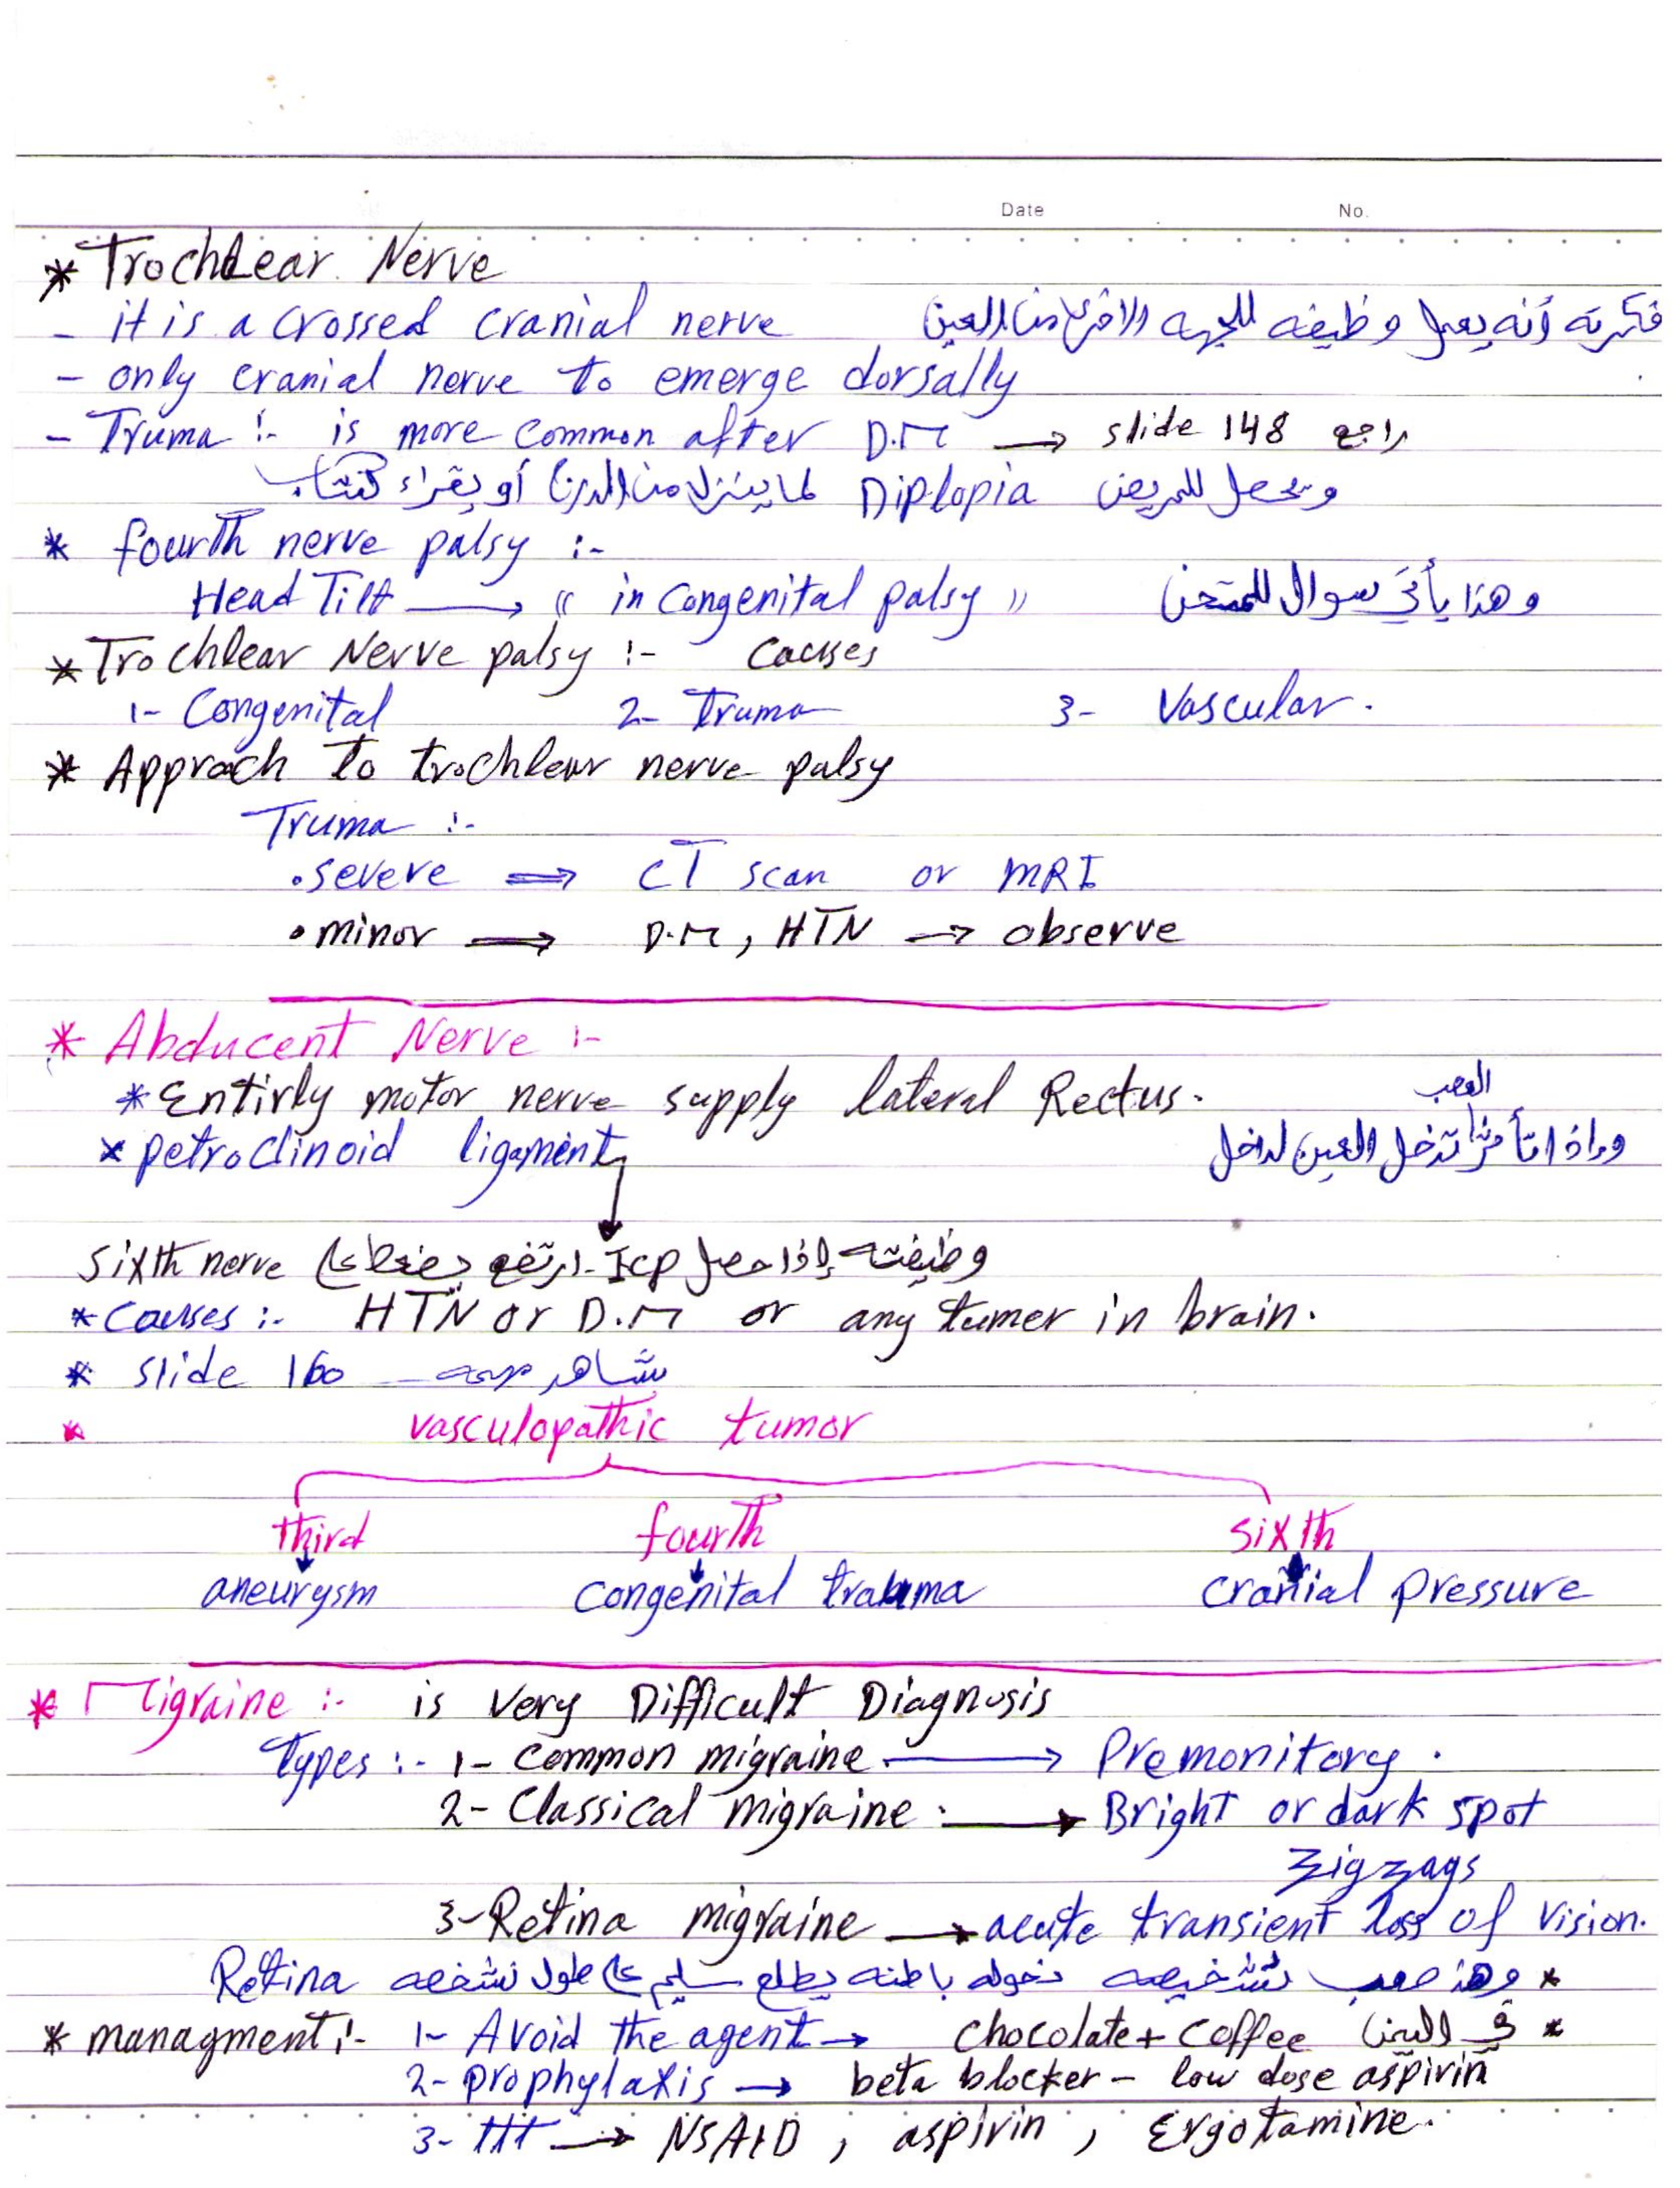 Date No.
* Trochlear Nerve
- it is a crossed cranial nerve فكرته أنه يعمل وظيفه للجهه الاخرى من العين
- only cranial nerve to emerge dorsally
- Truma :- is more common after D.M → slide 148 راجع
ويحصل للمريض Diplopia لما ينزل من الدرج أو يقراء كتاب
* fourth nerve palsy :-
Head Tilt → (( in congenital palsy )) وهذا يأتي سوال للممتحن
* Trochlear Nerve palsy :- Causes
1- Congenital 2- Truma 3- Vascular.
* Approch to trochlear nerve palsy
Truma :-
• severe ⇒ CT scan or MRI
• minor ⇒ D.M , HTN → observe
* Abducent Nerve :-
* Entirly motor nerve supply lateral Rectus.
العصب
* petroclinoid ligament وإذا تأثر هذا تدخل العين لداخل
وظيفته إذا حصل ICP ارتفع يضغط على sixth nerve
* Causes :- HTN or D.M or any tumer in brain.
* slide 160 شاهد
* vasculopathic tumor
third fourth sixth
aneurysm congenital trauma cranial pressure
* Migraine :- is Very Difficult Diagnosis
Types :- 1- common migraine → Premonitory .
2- Classical migraine . → Bright or dark spot
zigzags
3- Retina migraine → acute transient loss of vision.
* وهذ صعب تشخيصه باطنه يطلع سليم على طول نشخصه Retina
* managment :- 1- Avoid the agent → chocolate + coffee في اليمن *
2- prophylaxis → beta blocker - low dose aspirin
3- ttt → NSAID , aspirin , Ergotamine.